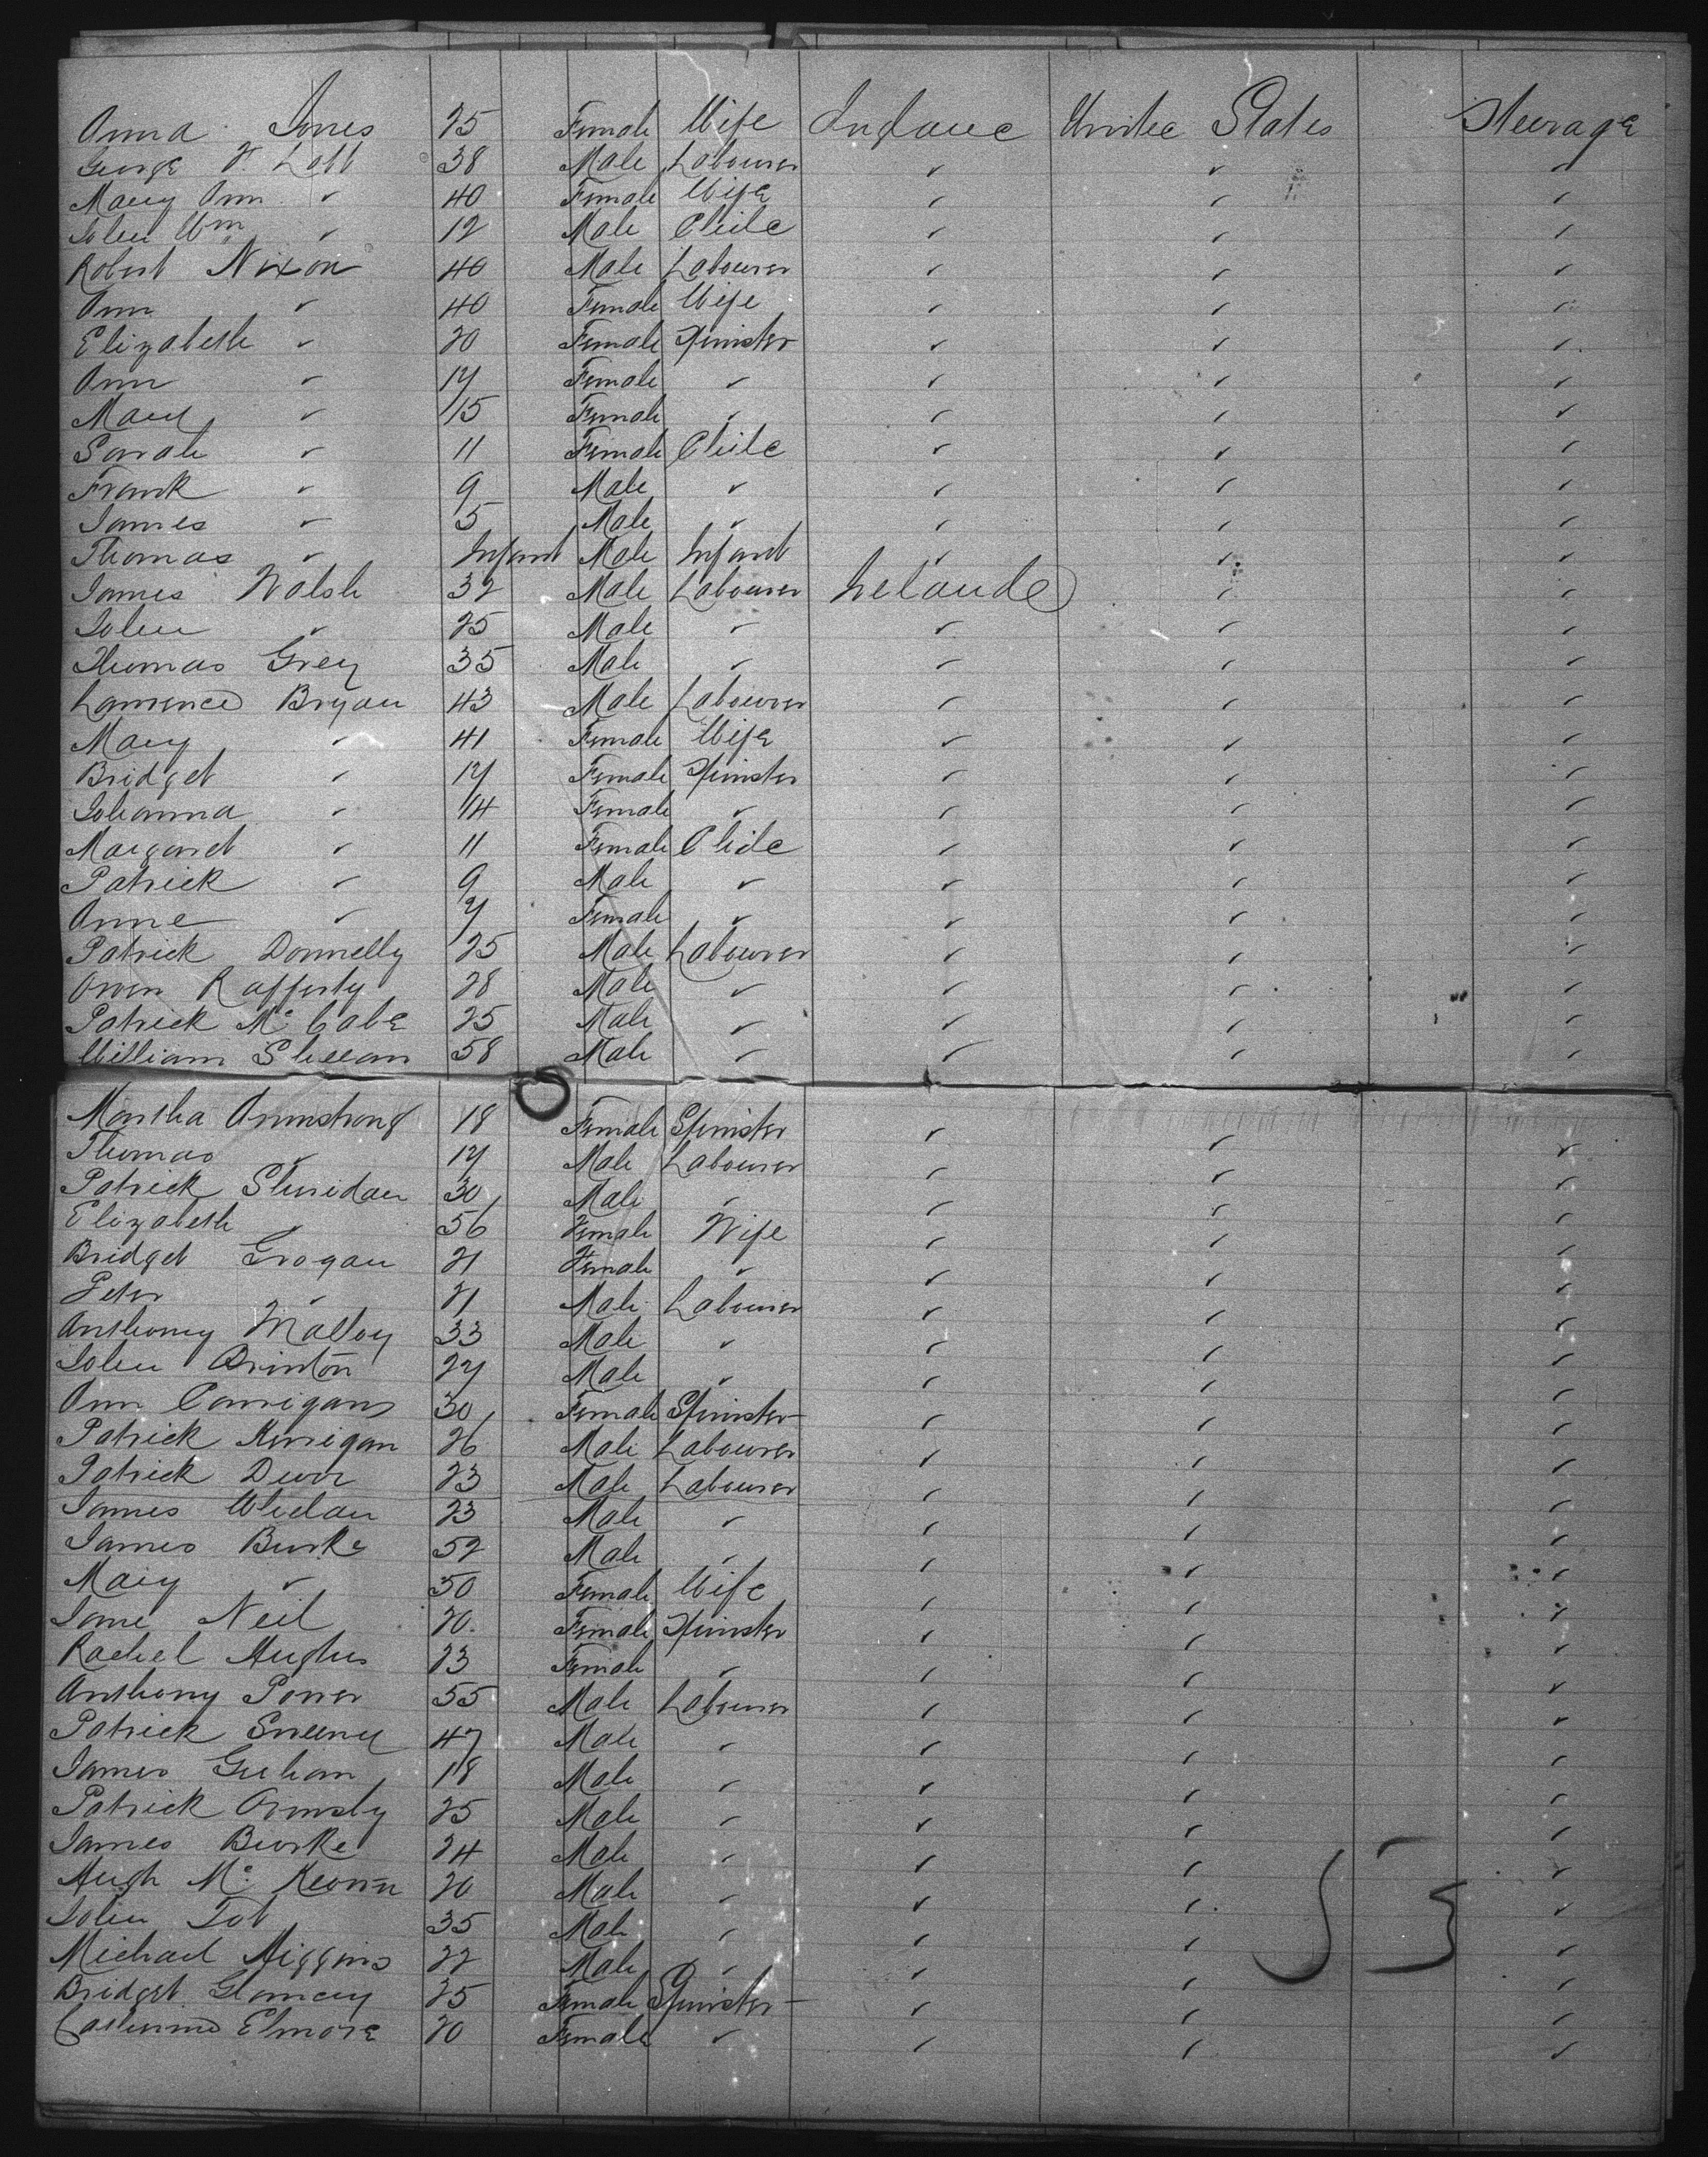 Anna Jones 25 Female Wife England United States Steerage
George F. Lott 38 Male Labourer ✓ ✓ ✓
Mary Ann ✓ 40 Female Wife ✓ ✓ ✓
John Wm ✓ 12 Male Child ✓ ✓ ✓
Robert Nixon 40 Male Labourer ✓ ✓ ✓
Ann ✓ 40 Female Wife ✓ ✓ ✓
Elizabeth ✓ 20 Female Spinster ✓ ✓ ✓
Ann ✓ 17 Female ✓ ✓ ✓ ✓
Mary ✓ 15 Female ✓ ✓ ✓ ✓
Sarah ✓ 11 Female Child ✓ ✓ ✓
Frank ✓ 9 Male ✓ ✓ ✓ ✓
James ✓ 5 Male ✓ ✓ ✓ ✓
Thomas ✓ Infant Male Infant ✓ ✓ ✓
James Walsh 32 Male Labourer Ireland ✓ ✓
John ✓ 25 Male ✓ ✓ ✓ ✓
Thomas Grey 35 Male ✓ ✓ ✓ ✓
Lawrence Bryan 43 Male Labourer ✓ ✓ ✓
Mary ✓ 41 Female Wife ✓ ✓ ✓
Bridget ✓ 17 Female Spinster ✓ ✓ ✓
Johanna ✓ 14 Female ✓ ✓ ✓ ✓
Margaret ✓ 11 Female Child ✓ ✓ ✓
Patrick ✓ 9 Male ✓ ✓ ✓ ✓
Anne ✓ 7 Female ✓ ✓ ✓ ✓
Patrick Donnelly 25 Male Labourer ✓ ✓ ✓
Owen Rafferty 28 Male ✓ ✓ ✓ ✓
Patrick Mc Cabe 25 Male ✓ ✓ ✓ ✓
William 58 Male ✓ ✓ ✓ ✓
Martha Armstrong 18 Female Spinster ✓ ✓ ✓
Thomas ✓ 17 Male Labourer ✓ ✓ ✓
Patrick Sheridan 30 Male ✓ ✓ ✓ ✓
Elizabeth ✓ 56 Female Wife ✓ ✓ ✓
Bridget Grogan 21 Female ✓ ✓ ✓ ✓
Peter ✓ 21 Male Labourer ✓ ✓ ✓
Anthony Malloy 33 Male ✓ ✓ ✓ ✓
John Brinton 27 Male ✓ ✓ ✓ ✓
Ann Corrigan 30 Female Spinster ✓ ✓ ✓
Patrick Kerrigan 26 Male Labourer ✓ ✓ ✓
Patrick 23 Male Labourer ✓ ✓ ✓
James Whelan 23 Male ✓ ✓ ✓ ✓
James Burke 52 Male ✓ ✓ ✓ ✓
Mary ✓ 50 Female Wife ✓ ✓ ✓
Jane Neil 20 Female Spinster ✓ ✓ ✓
Rachel Hughes 23 Female ✓ ✓ ✓ ✓
Anthony Power 55 Male Labourer ✓ ✓ ✓
Patrick Sweeney 47 Male ✓ ✓ ✓ ✓
James 18 Male ✓ ✓ ✓ ✓
Patrick Ormsby 25 Male ✓ ✓ ✓ ✓
James Burke 24 Male ✓ ✓ ✓ ✓
Hugh Mc Keown 20 Male ✓ ✓ ✓ ✓
John 35 Male ✓ ✓ ✓ ✓
Michael Higgins 22 Male ✓ ✓ ✓ ✓
Bridget Glancey 25 Female Spinster ✓ ✓ ✓
Catherine Elmore 20 Female ✓ ✓ ✓ ✓